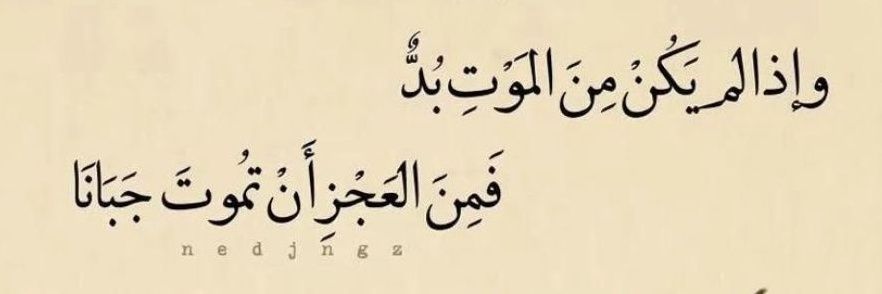 وإذا لم يَكُنْ مِنَ المَوْتِ بُدٌّ
فَمِنَ العَجْزِ أَنْ تمُوتَ جَبَانَا
n e d j n g z